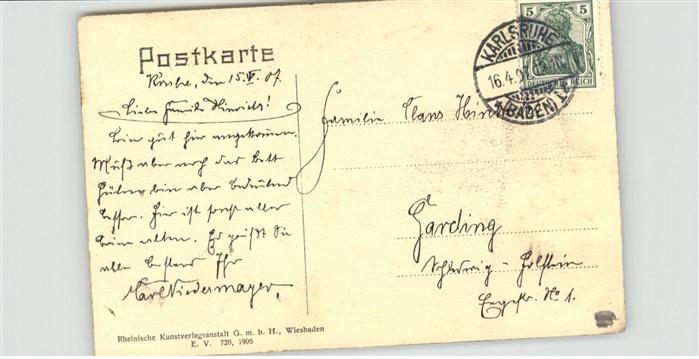 Postkarte
Karlsruhe, den 15.IV.07.
Liebe Familie Hinrichs!
Bin gut hier angekommen.
Muß aber noch das Bett
hüten, bin aber bedeutend
besser. Hier ist sonst alles
beim alten. Es grüßt Sie
alle bestens Ihr
Karl Niedermayer.
Rheinische Kunstverlagsanstalt G. m. b. H., Wiesbaden
E. V. 720, 1905
5 5
DEUTSCHES REICH
KARLSRUHE
16.4.
(BADEN)
Familie Claus
Garding
Schleswig-Holstein
No 1.